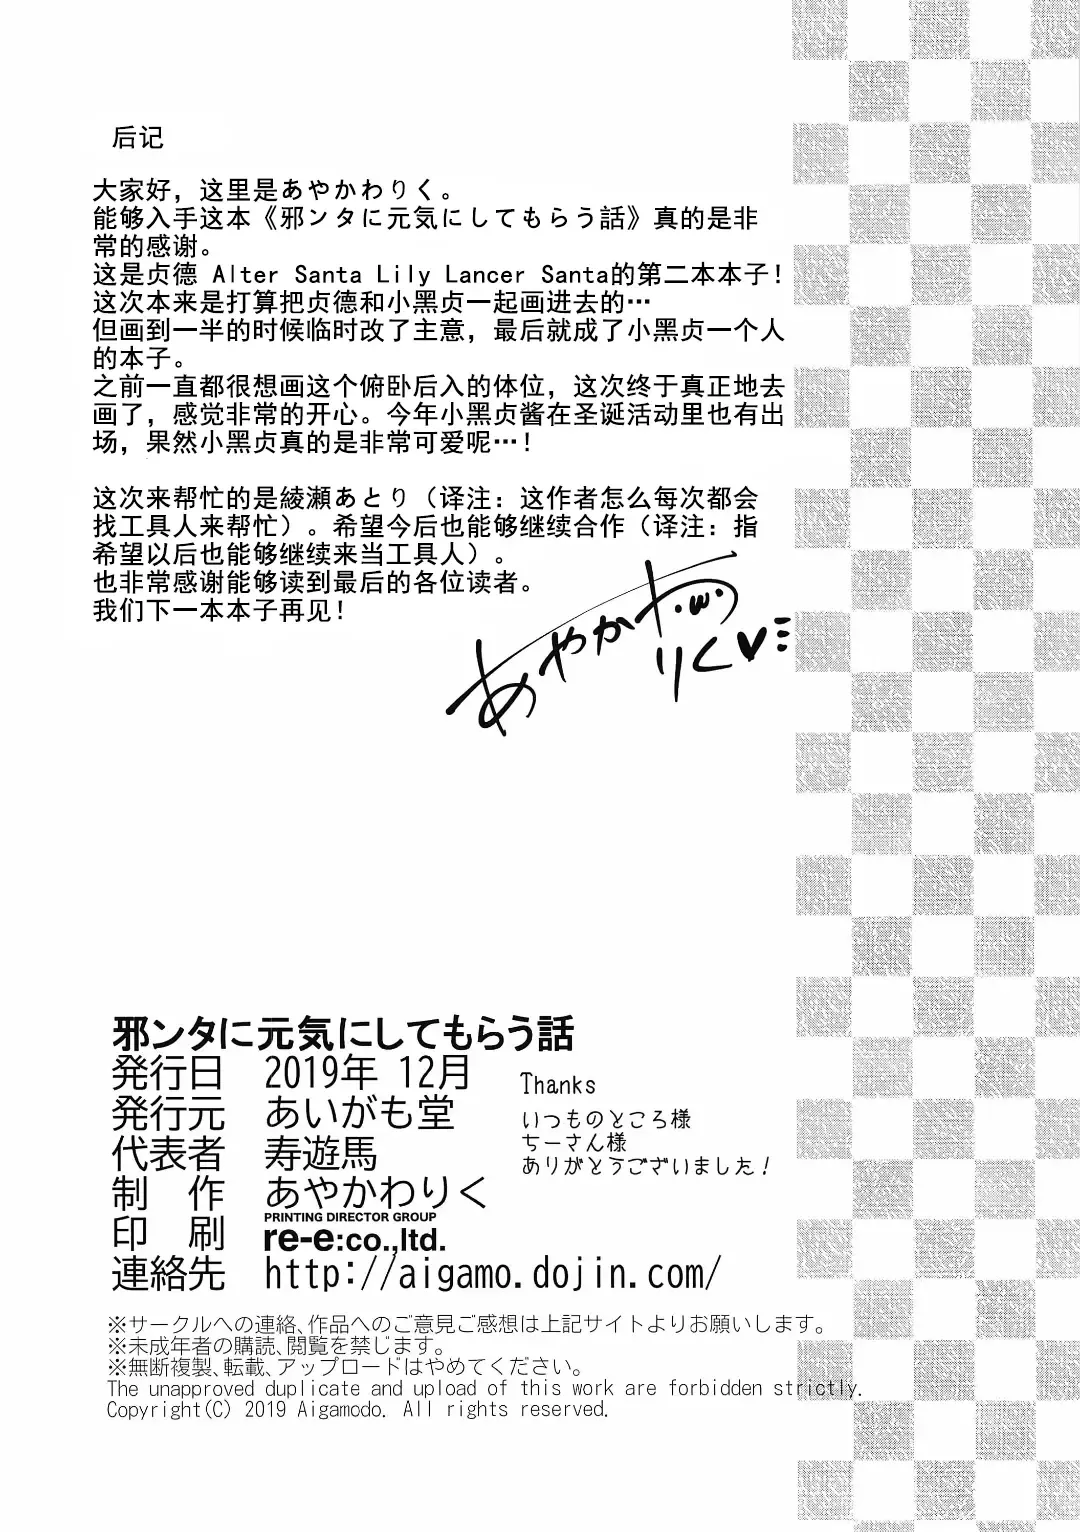 后记
大家好，这里是あやかわりく。
能够入手这本《邪ンタに元気にしてもらう話》真的是非
常的感谢。
这是贞德 Alter Santa Lily Lancer Santa的第二本本子！
这次本来是打算把贞德和小黑贞一起画进去的…
但画到一半的时候临时改了主意，最后就成了小黑贞一个人
的本子。
这次来帮忙的是綾瀬あとり（译注：这作者怎么每次都会
找工具人来帮忙）。希望今后也能够继续合作（译注：指
希望以后也能够继续来当工具人）。
也非常感谢能够读到最后的各位读者。
我们下一本本子再见！
あやかわ
りく
邪ンタに元気にしてもらう話
発行日 2019年 12月
発行元 あいがも堂
代表者 寿遊馬
制 作 あやかわりく
印 刷 PRINTING DIRECTOR GROUP
re-e:co.,ltd.
連絡先 http://aigamo.dojin.com/
Thanks
いつものところ様
ちーさん様
ありがとうございました！
※サークルへの連絡、作品へのご意見ご感想は上記サイトよりお願いします。
※未成年者の購読、閲覧を禁じます。
※無断複製、転載、アップロードはやめてください。
The unapproved duplicate and upload of this work are forbidden strictly.
Copyright(C) 2019 Aigamodo. All rights reserved.